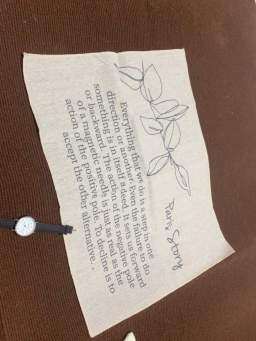 Paris Story
Everything that we do is a step in one
direction or another. Even the failure to do
something is in itself a deed. It sets us forward
or backward. The action of the negative pole
of a magnetic needle is just as real as the
action of the positive pole. To decline is to
accept the other alternative. .